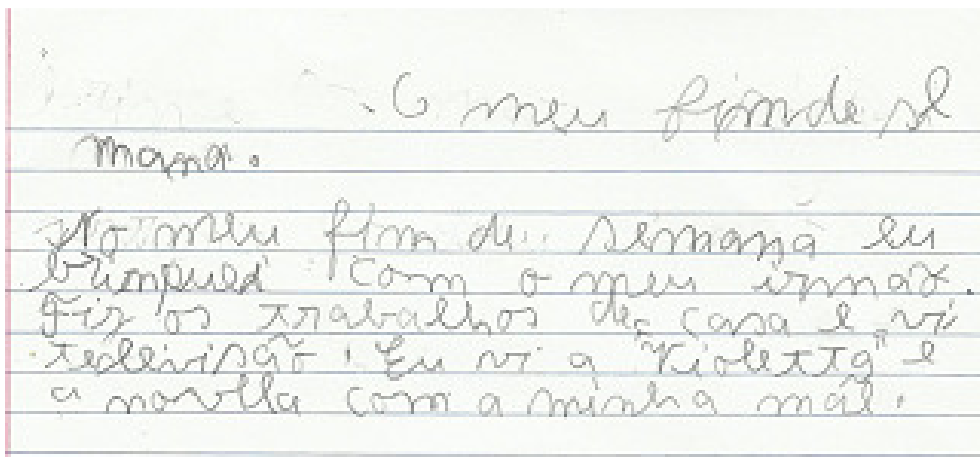 O meu fim de se
mana.
No meu fim de semana eu
brinquei com o meu irmão.
Fiz os trabalhos de casa e vi
televisão. Eu vi a "Violetta" e
a novela com a minha mãe.